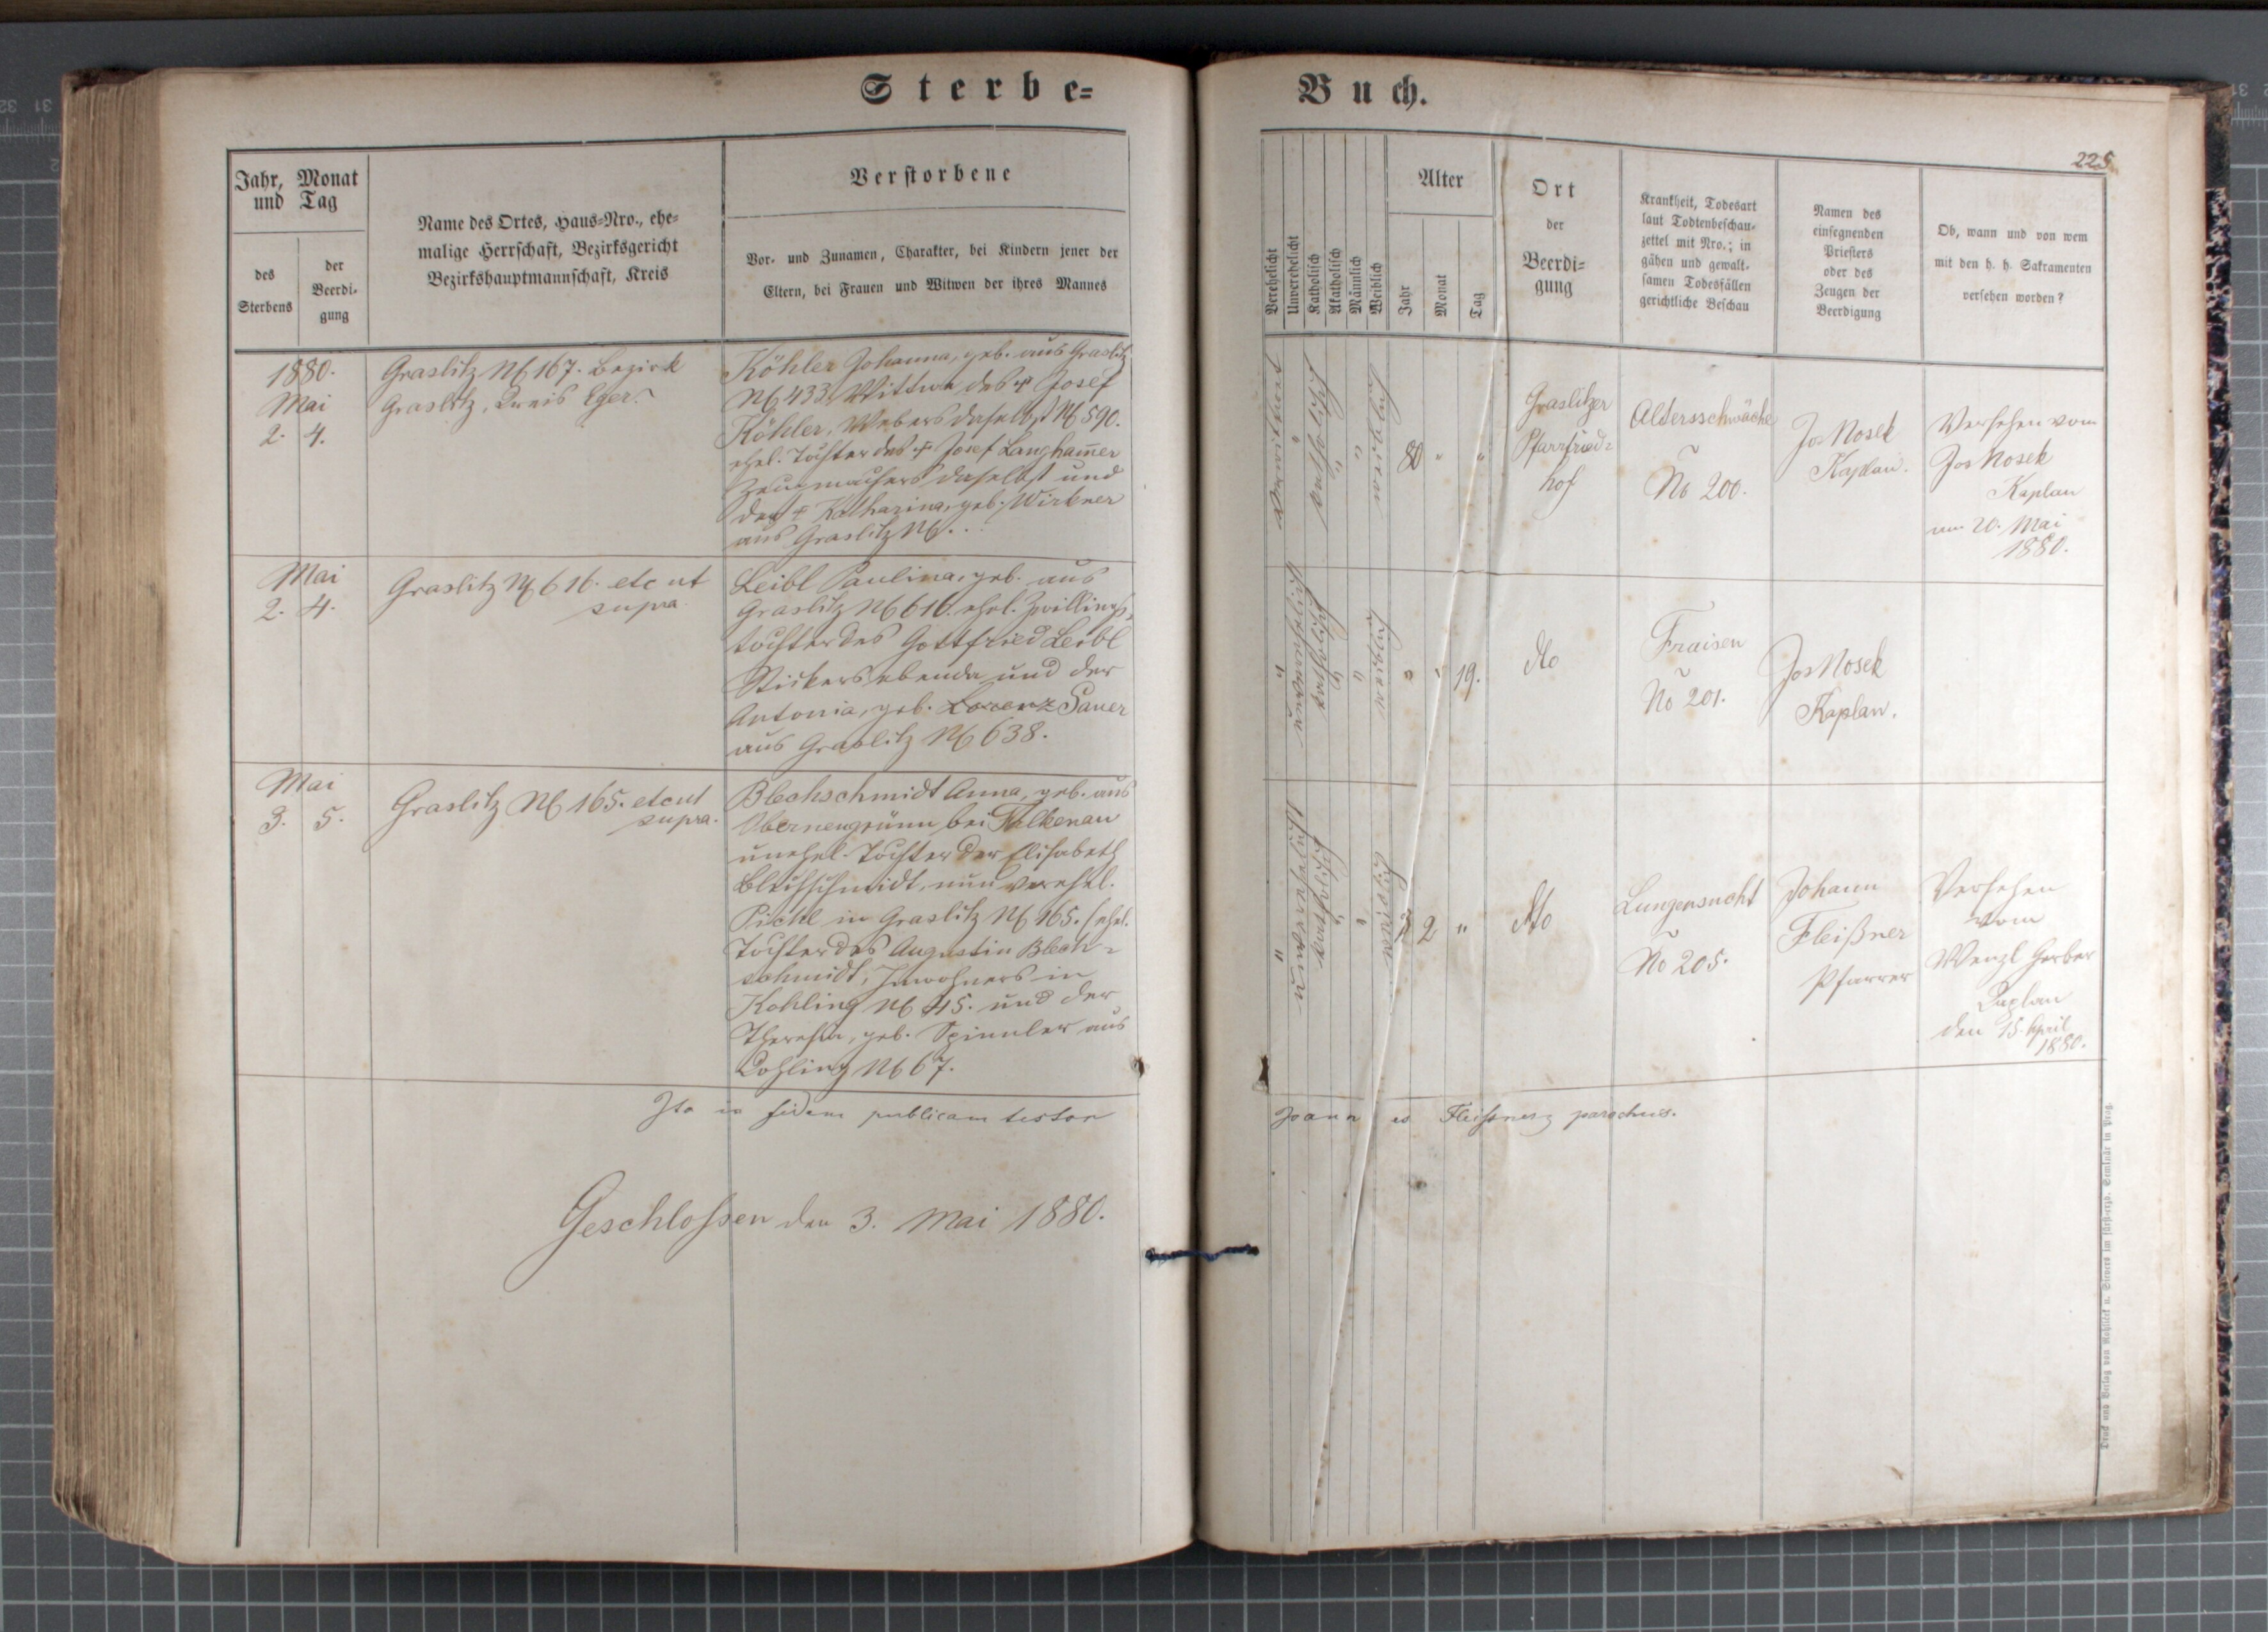 Sterbe-
Buch.
225
Jahr, Monat
und Tag
des
Sterbens
der
Beerdi-
gung
Name des Ortes, Haus-Nro., ehe-
malige Herrschaft, Bezirksgericht
Bezirkshauptmannschaft, Kreis
Verstorbene
Vor- und Zunamen, Charakter, bei Kindern jener der
Eltern, bei Frauen und Witwen der ihres Mannes
Verehelicht
Unverehelicht
Katholisch
Akatholisch
Männlich
Weiblich
Alter
Jahr
Monat
Tag
Ort
der
Beerdi-
gung
Krankheit, Todesart
laut Todtenbeschau-
zettel mit Nro.; in
gähen und gewalt-
samen Todesfällen
gerichtliche Beschau
Namen des
einsegnenden
Priesters
oder des
Zeugen der
Beerdigung
Ob, wann und von wem
mit den h. h. Sakramenten
versehen worden?
1880.
Mai
2. 4.
Graslitz N 167. Bezirk
Graslitz, Kreis Eger.
Köhler Johanna, geb. aus Graslitz
N 433, Wittwe des + Josef
Köhler, Webers daselbst N 590.
ehel. Tochter des + Josef Langham̄er
Zeugmachers daselbst und
der + Katharina, geb. Wirkner
aus Graslitz N . .
verwitwet
"
katholisch
"
"
weiblich
80 " "
Graslitzer
Pfarrfried-
hof
Altersschwäche
No 200.
Jos Nosek
Kaplan.
Versehen vom
Jos Nosek
Kaplan
am 20. Mai
1880.
Mai
2. 4.
Graslitz N 616. etc ut
supra.
Leibl Paulina, geb. aus
Graslitz N 616. ehel. Zwillings-
tochter des Gottfried Leibl
Stickers ebenda und der
Antonia, geb. Lorenz Sauer
aus Graslitz N 638.
"
unverehelicht
katholisch
"
"
weiblich
" " 19.
dto
Fraisen
No 201.
Jos Nosek
Kaplan.
Mai
3. 5.
Graslitz N 165. etc ut
supra.
Blechschmidt Anna, geb. aus
Oberneugrünn bei Falkenau
unehel. Tochter der Elisabeth
Blechschmidt, nun verehel.
Pichl in Graslitz N 165. (ehel.
Tochter des Augustin Blech-
schmidt, Inwohners in
Kohling N 45. und der
Theresia, geb. Spinnler aus
Kohling N 67.
"
unverehelicht
katholisch
"
"
weiblich
2 "
dto
Lungensucht
No 205.
Johann
Fleißner
Pfarrer
Versehen
vom
Wenzl Gerber
Kaplan
den 15. April
1880.
Ita in fidem publicam testor
Joannes Fleißner parochus.
Geschlossen den 3. Mai 1880.